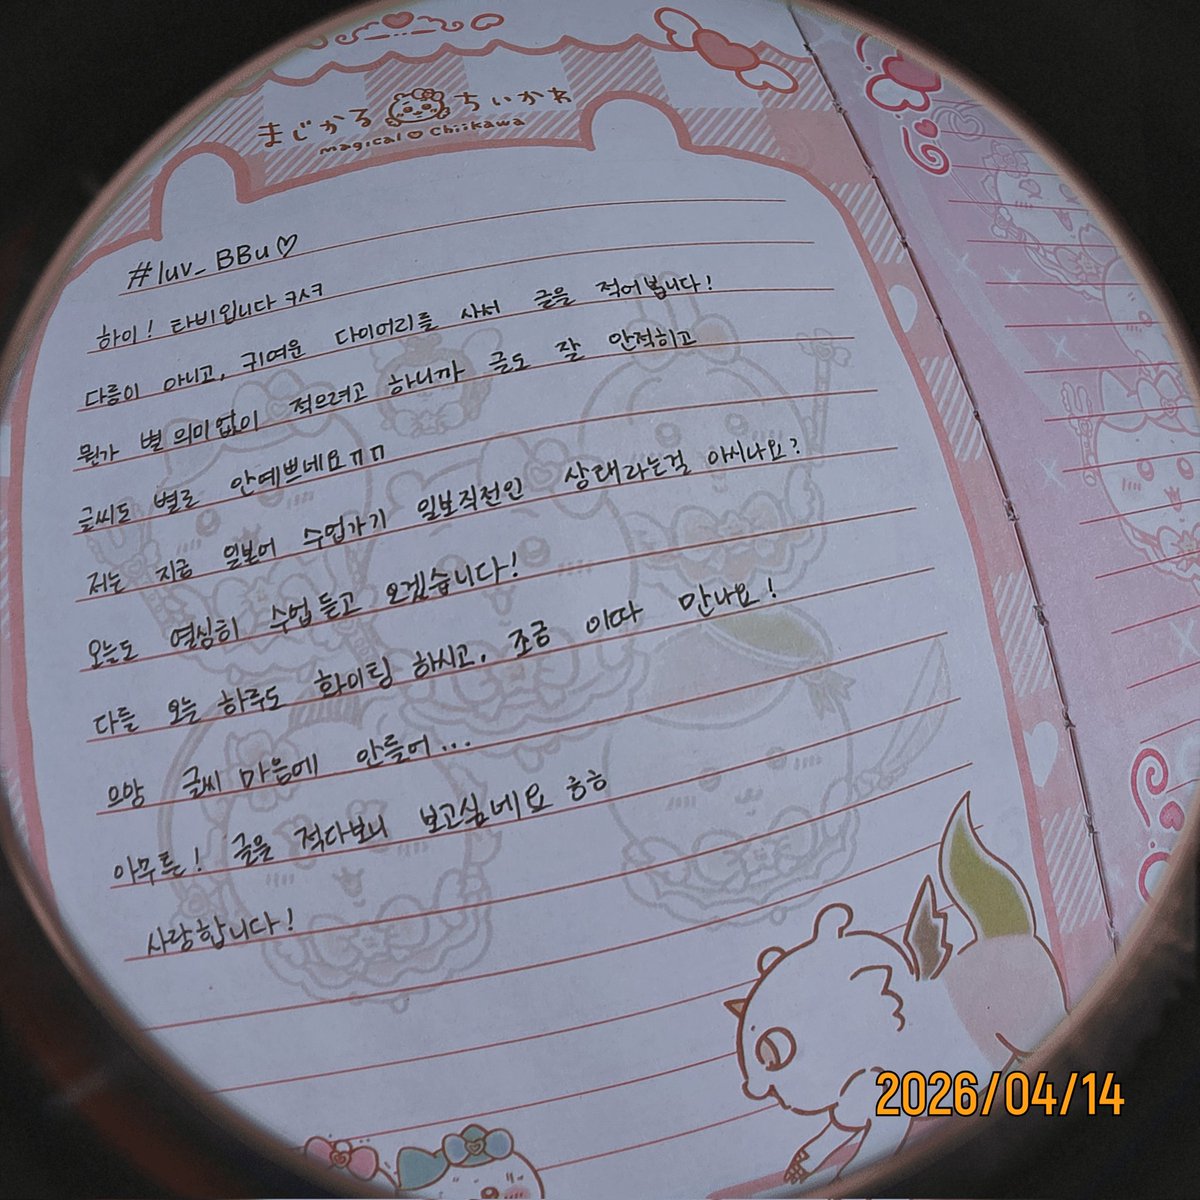 まじかる ちいかわ
magical♡Chiikawa
#luv_BBu♡
하이! 타비입니다 ㅋㅅㅋ
다름이 아니고, 귀여운 다이어리를 사서 글을 적어봅니다!
뭔가 별 의미없이 적으려고 하니까 글도 잘 안적히고
글씨도 별로 안예쁘네요ㅠㅠ
저는 지금 일본어 수업가기 일보직전인 상태라는걸 아시나요?
오늘도 열심히 수업 듣고 오겠습니다!
다들 오늘 하루도 화이팅 하시고, 조금 이따 만나요!
으앙 글씨 마음에 안들어...
아무튼! 글을 적다보니 보고싶네요 ㅎㅎ
사랑합니다!
2026/04/14